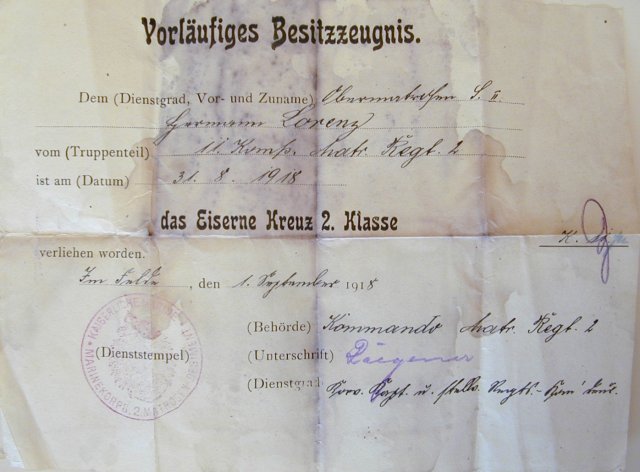 Vorläufiges Besitzzeugnis.
Dem (Dienstgrad, Vor- und Zuname) Obermatrosen S. II
Hermann Lorenz
vom (Truppenteil) 11. Komp. Matr. Regt. 2
ist am (Datum) 31. 8. 1918
das Eiserne Kreuz 2. Klasse
K.
verliehen worden.
Im Felde, den 1. September 1918
(Behörde) Kommando Matr. Regt. 2
(Dienststempel) (Unterschrift)
(Dienstgrad Korv. Kapt. u. stellv. Regts.-
KAISERLICHE MARINEKORPS. 2.